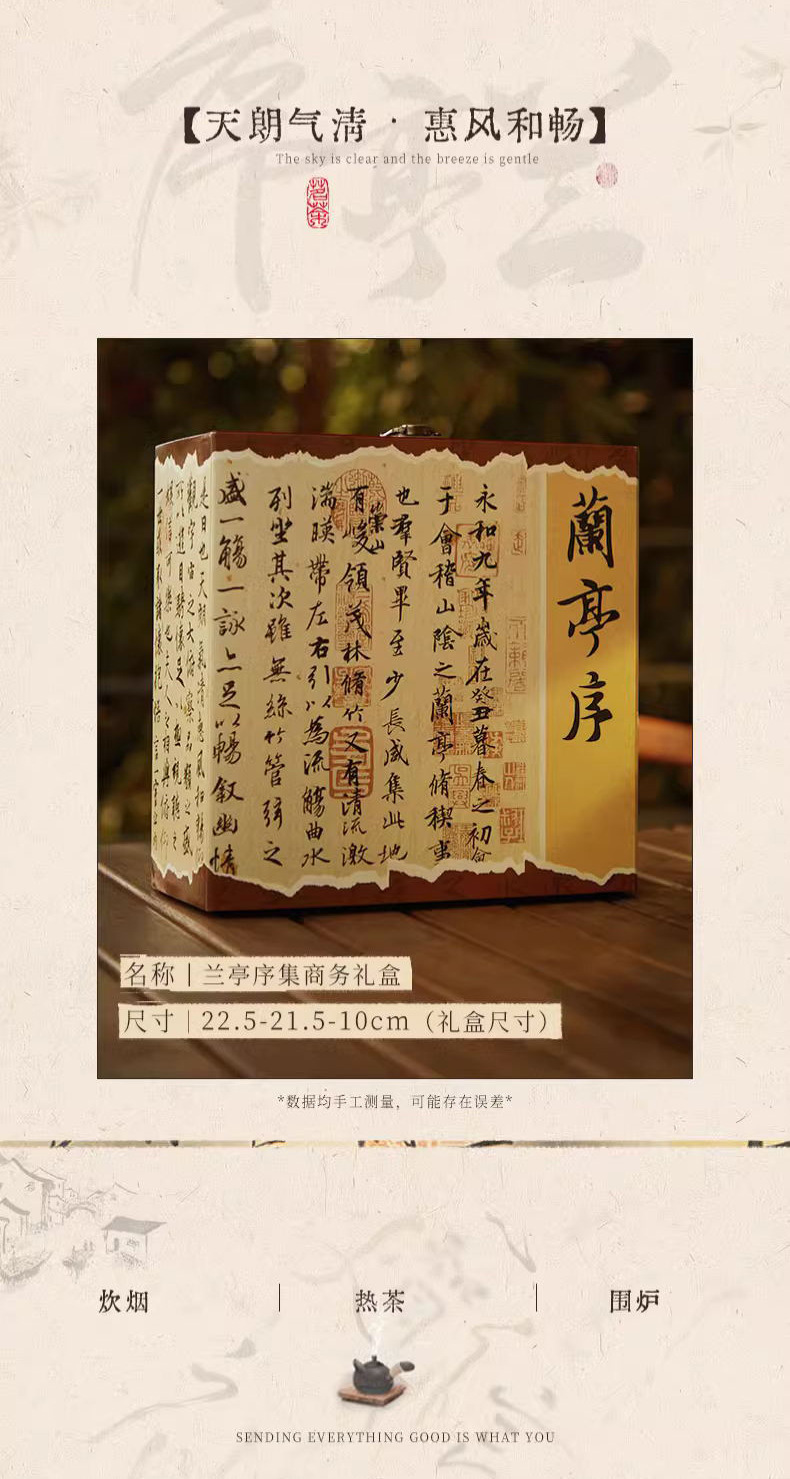 【天朗气清 · 惠风和畅】
The sky is clear and the breeze is gentle
茗茶
蘭亭序
永和九年歲在癸丑暮春之初會
于會稽山陰之蘭亭脩稧事
也群賢畢至少長咸集此地
有峻領茂林脩竹又有清流激
崇山
湍暎帶左右引以為流觴曲水
列坐其次雖無絲竹管弦之
盛一觴一詠亦足以暢敘幽情
是日也天朗氣清惠風和暢
觀宇宙之大俯察品類之盛
所以遊目騁懷足以極視聽之
名称 | 兰亭序集商务礼盒
尺寸 | 22.5-21.5-10cm（礼盒尺寸）
*数据均手工测量，可能存在误差*
炊烟 | 热茶 | 围炉
SENDING EVERYTHING GOOD IS WHAT YOU